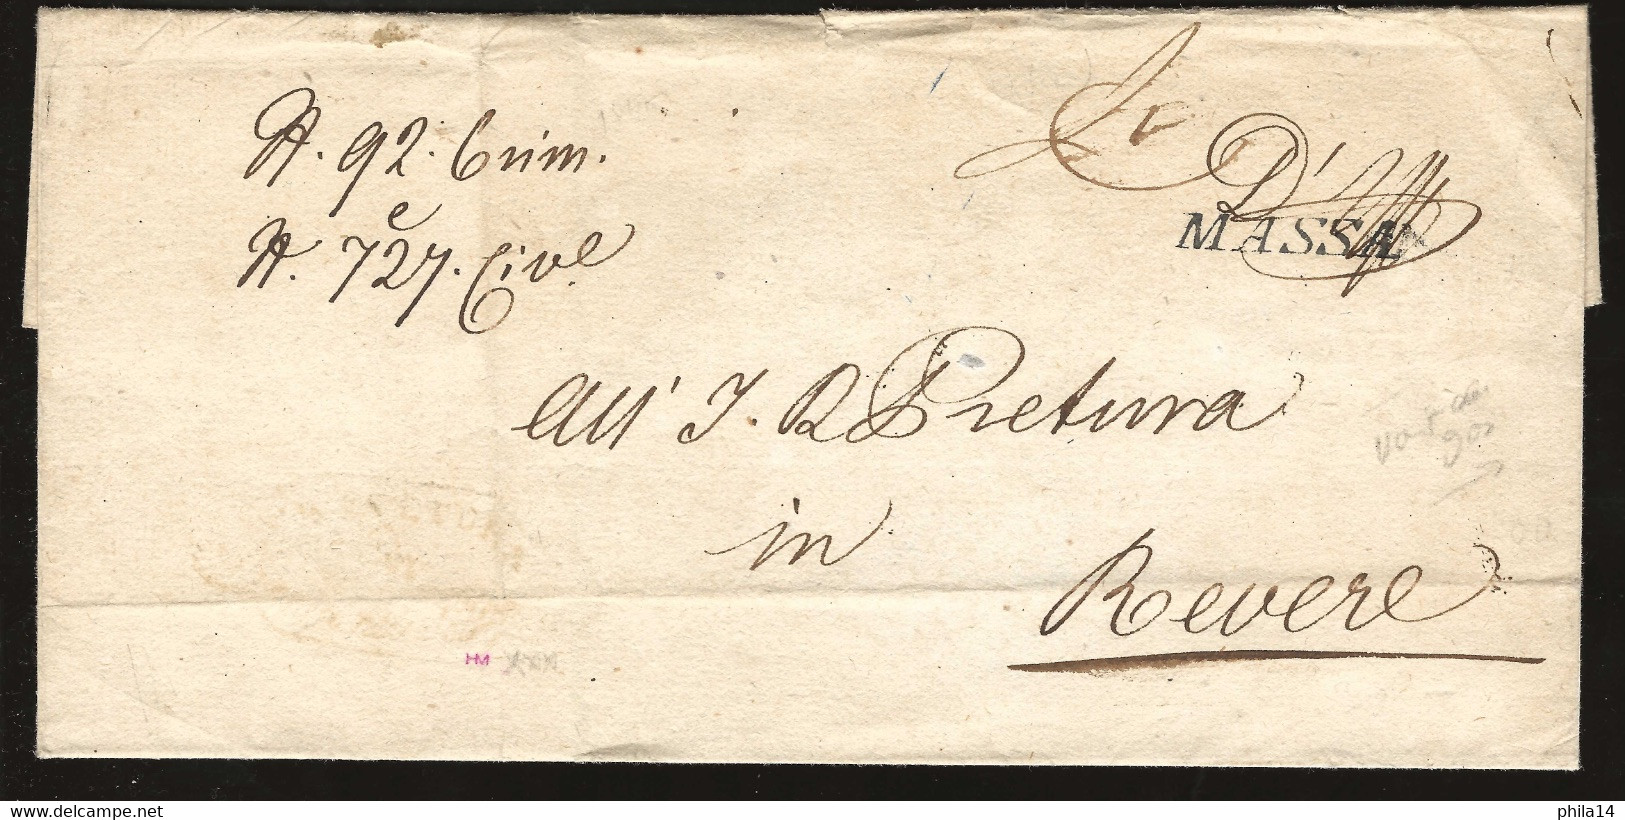 N. 92. Crim.
N. 727. Civl.
e
D'Uff
MASSA
All' I. R. Pretura
in
Revere
HM
www.delcampe.net
phila14